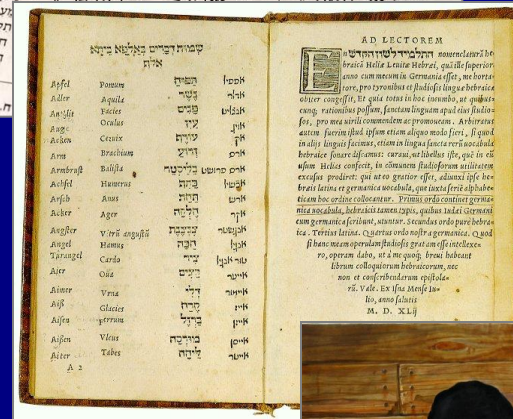 שמות דברים
Apfel Pomum תפוח
Adler Aquila נשר אדלר
Antzlit Facies פנים
Auge Oculus עין אויג
Acken Ceruix עורף
Arm Brachium זרוע ארם
Armbrust Balista ארם ברושט
Achsel Humerus כתף
Arsch Anus ארש
Acker Ager אקר
Angster Vitrū angustū
Angel Hamus חכה אנגל
Thurangel Cardo ציר
Aier Oua אייער
Aimer Vrna דלי איימר
Aiß Glacies קרח אייז
Aisen Ferrum ברזל אייזן
Aissen Vlcus אייסן
Aiter Tabes ליחה אייטר
A 2
AD LECTOREM
En nomenclaturā he
braicā Heliæ Leuitæ Hebræi, quā ille superiori
anno cum mecum in Germania esset, me horta-
tore, pro tyronibus et studiosis linguæ hebraicæ
obiter congessit, Et quia totus in hoc incumbo, ut quibus-
cunq; rationibus possum, sanctam linguam apud eius studio-
sos, pro mea uirili commendem ac promoueam. Arbitratus
autem fuerim istud ipsum etiam aliquo modo fieri, si quod
in alijs linguis facimus, etiam in lingua sancta rerū uocabula
hebraice sonare discamus: curaui, ut libellus iste, quē in eū
usum Helias confecit, in communem studiosorum utilitatem
excusus prodiret: qui ut eo gratior esset, adiunxi ipse he-
brais latina et germanica uocabula, quæ iuxta seriē alphabe-
ticam hoc ordine collocantur. Primus ordo continet germa-
nica uocabula, hebraicis tamen typis, quibus iudæi Germani
cum germanica scribunt, utuntur. Secundus ordo pure hebra-
ica. Tertius latina. Quartus ordo nostra germanica. Quod
si hanc meam operulam studiosis gratam esse intellexe-
ro, operam dabo, ut à me quoq; breui habeant
librum colloquiorum hebraicorum, nec
non et conscribendarum epistola-
rū. Vale. Ex Isna Mense Iu-
lio, anno salutis
M. D. XLij